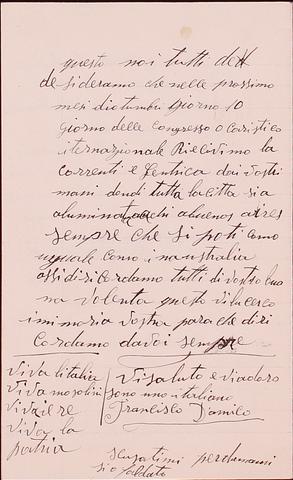 questo noi tutti de
desideramo che nelle prossimo
mesi diotumbri Giorno 10
Giorno delle Congresso o Caristico
iternazionale Ricevimo la
correnti e lentrica dai vostri
mani dondi tutta la citta sia
aluminata di abuenos aires
sempre che si poti como
uguale como inaustralia
ossidiricordamo tutti di vostro buo
na volenta questo vi
imimoria vostra para che diri
Cordamo davoi sempre
Viva litalia
Viva mosolini
Viva ilre
Viva la
patria
Visaluto e viadoro
sono uno italiano
Francisco Damilo
scusatimi perdunami
sio faldato